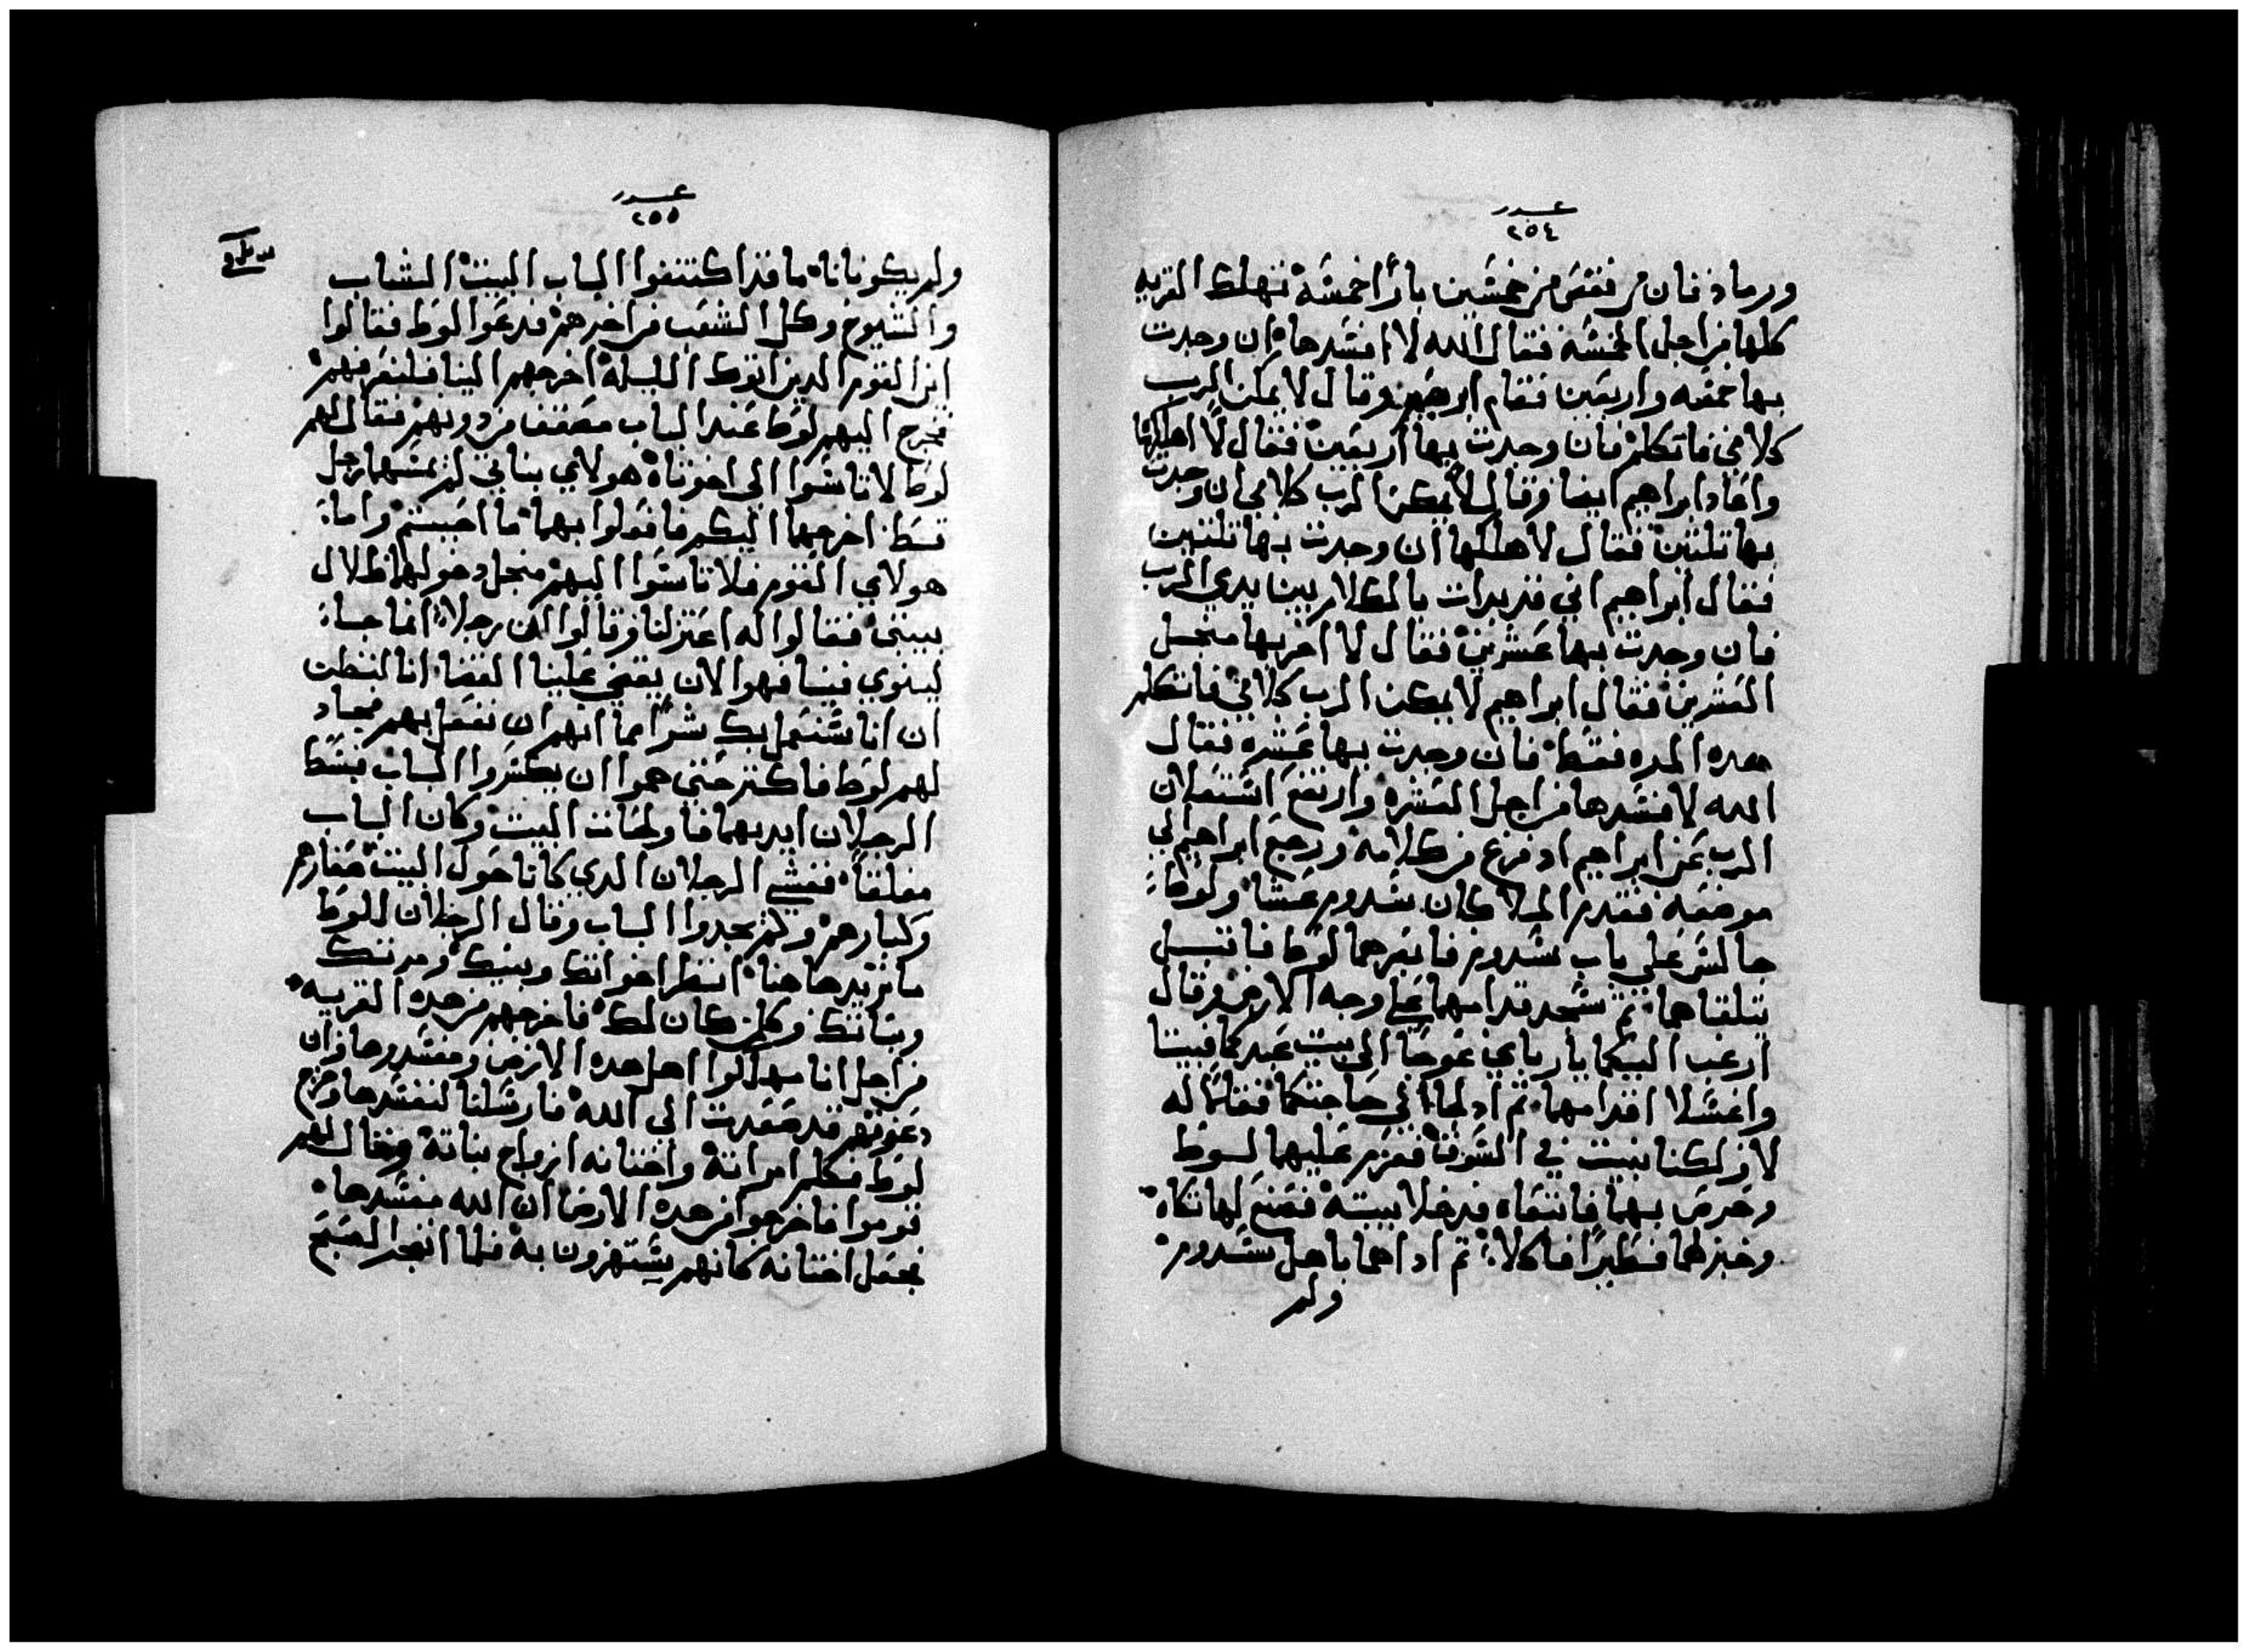 عدد
٢٥٤
ورماد فان نقص من خمسين بارا خمسه تهلك القريه
كلها من اجل الخمسه فقال الله لا افسدها ان وجدت
بها خمسه واربعين فقام ابرهيم وقال لا يمكن الرب
كلامي فاتكلم فان وجدت بها اربعين فقال لا اهلكها
واعاد ابراهيم ايضا وقال لا يمكن الرب كلامي ان وجدت
بها تلتين فقال لا هلكها ان وجدت بها تلتين
فقال ابراهيم اني قد بدات بالكلام بين يدي الرب
فان وجدت بها عشرين فقال لا اخربها منجل
العشرين فقال ابراهيم لا يمكن الرب كلامي فاتكلم
هده المره فقط فان وجدت بها عشره فقال
الله لا فسدها من اجل العشره وارتفع استعلان
الرب عن ابراهيم اد فرغ من كلامه ورجع ابراهيم الي
موضعه فقدم الملاكان سدوم عشا ولوط
جالس علي باب سدوم فابصرهما لوط فاقبل
يتلقاهما تم سجد قدامهما علي وجه الارض وقال
ارغب اليكما يا ربايي عوجا الي بيت عبدكما فبيتا
واغسلا اقدامهما تم ادلجا الي حاجتكما فقالا له
لا ولكنا نبيت في السوق فعزم عليهما لوط
وحرص بهما فاتبعاه فدخلا بيته فصنع لهما تكاه
وخبز لهما فطيرا فاكلا تم ادا هما باهل سدوم
ولم
عدد
٢٥٥
ولم يكونا ناما قد اكتنفوا الباب البيت الشاب
والشيوخ وكل الشعب من اخرهم فدعوا لوط فقالوا
اين القوم الدين اتوك الليله اخرجهم الينا فلنعرفهم
فخرج اليهم لوط عند الباب مصفف من دونهم فقال لهم
لوط لا تاسوا الي اخوتاه هولاي بناتي لم يمسهما رجل
قط اخرجهما اليكم فافعلوا بهما ما احببتم واما
هولاي القوم فلا تاسوا اليهم منجل دخولهم اظلال
بيتي فقالوا له اعتزلنا وقالوا الكن رجلا انما جاء
لينوي فينا فهوا الان يقضي علينا القضا انا لنظن
ان انا سنعمل بك شرا مما انهم ان نفعل بهم فجاد
لهم لوط فاكتر حتي هموا ان يكسروا الباب فبسط
الرجلان ايديهما فاولجات البيت وكان الباب
مغلقا فغشي الرجلان الدي كانا حول البيت صغارهم
وكبارهم ولم يجدوا الباب وقال الرجلان للوط
ما تريد هاهنا انظر اخواتك وبنيك ومرتك
وبناتك وكلمن كان لك فاخرجهم من هده القريه
من اجل انا مهلكوا اهل هده الارض ومفسدوها وان
دعوتهم قد صعدت الي الله فارسلنا لنفسدها وخرج
لوط فكلم امراته واختانه ازواج بناته وقال لهم
قوموا فاخرجوا من هده الارض ان الله مفسدها
فجعل اختانه كانهم يستهزون به فلما انفجر الصبح